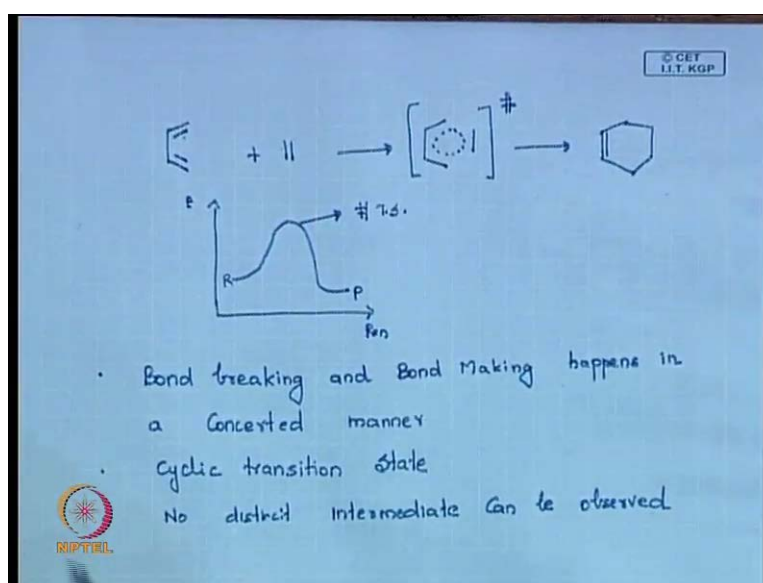 © CET
I.I.T. KGP
+
#
E
# T.S.
R
P
Rxn
• Bond breaking and Bond Making happens in
a Concerted manner
• Cyclic transition State
No distncit Intermediate Can be observed
NPTEL